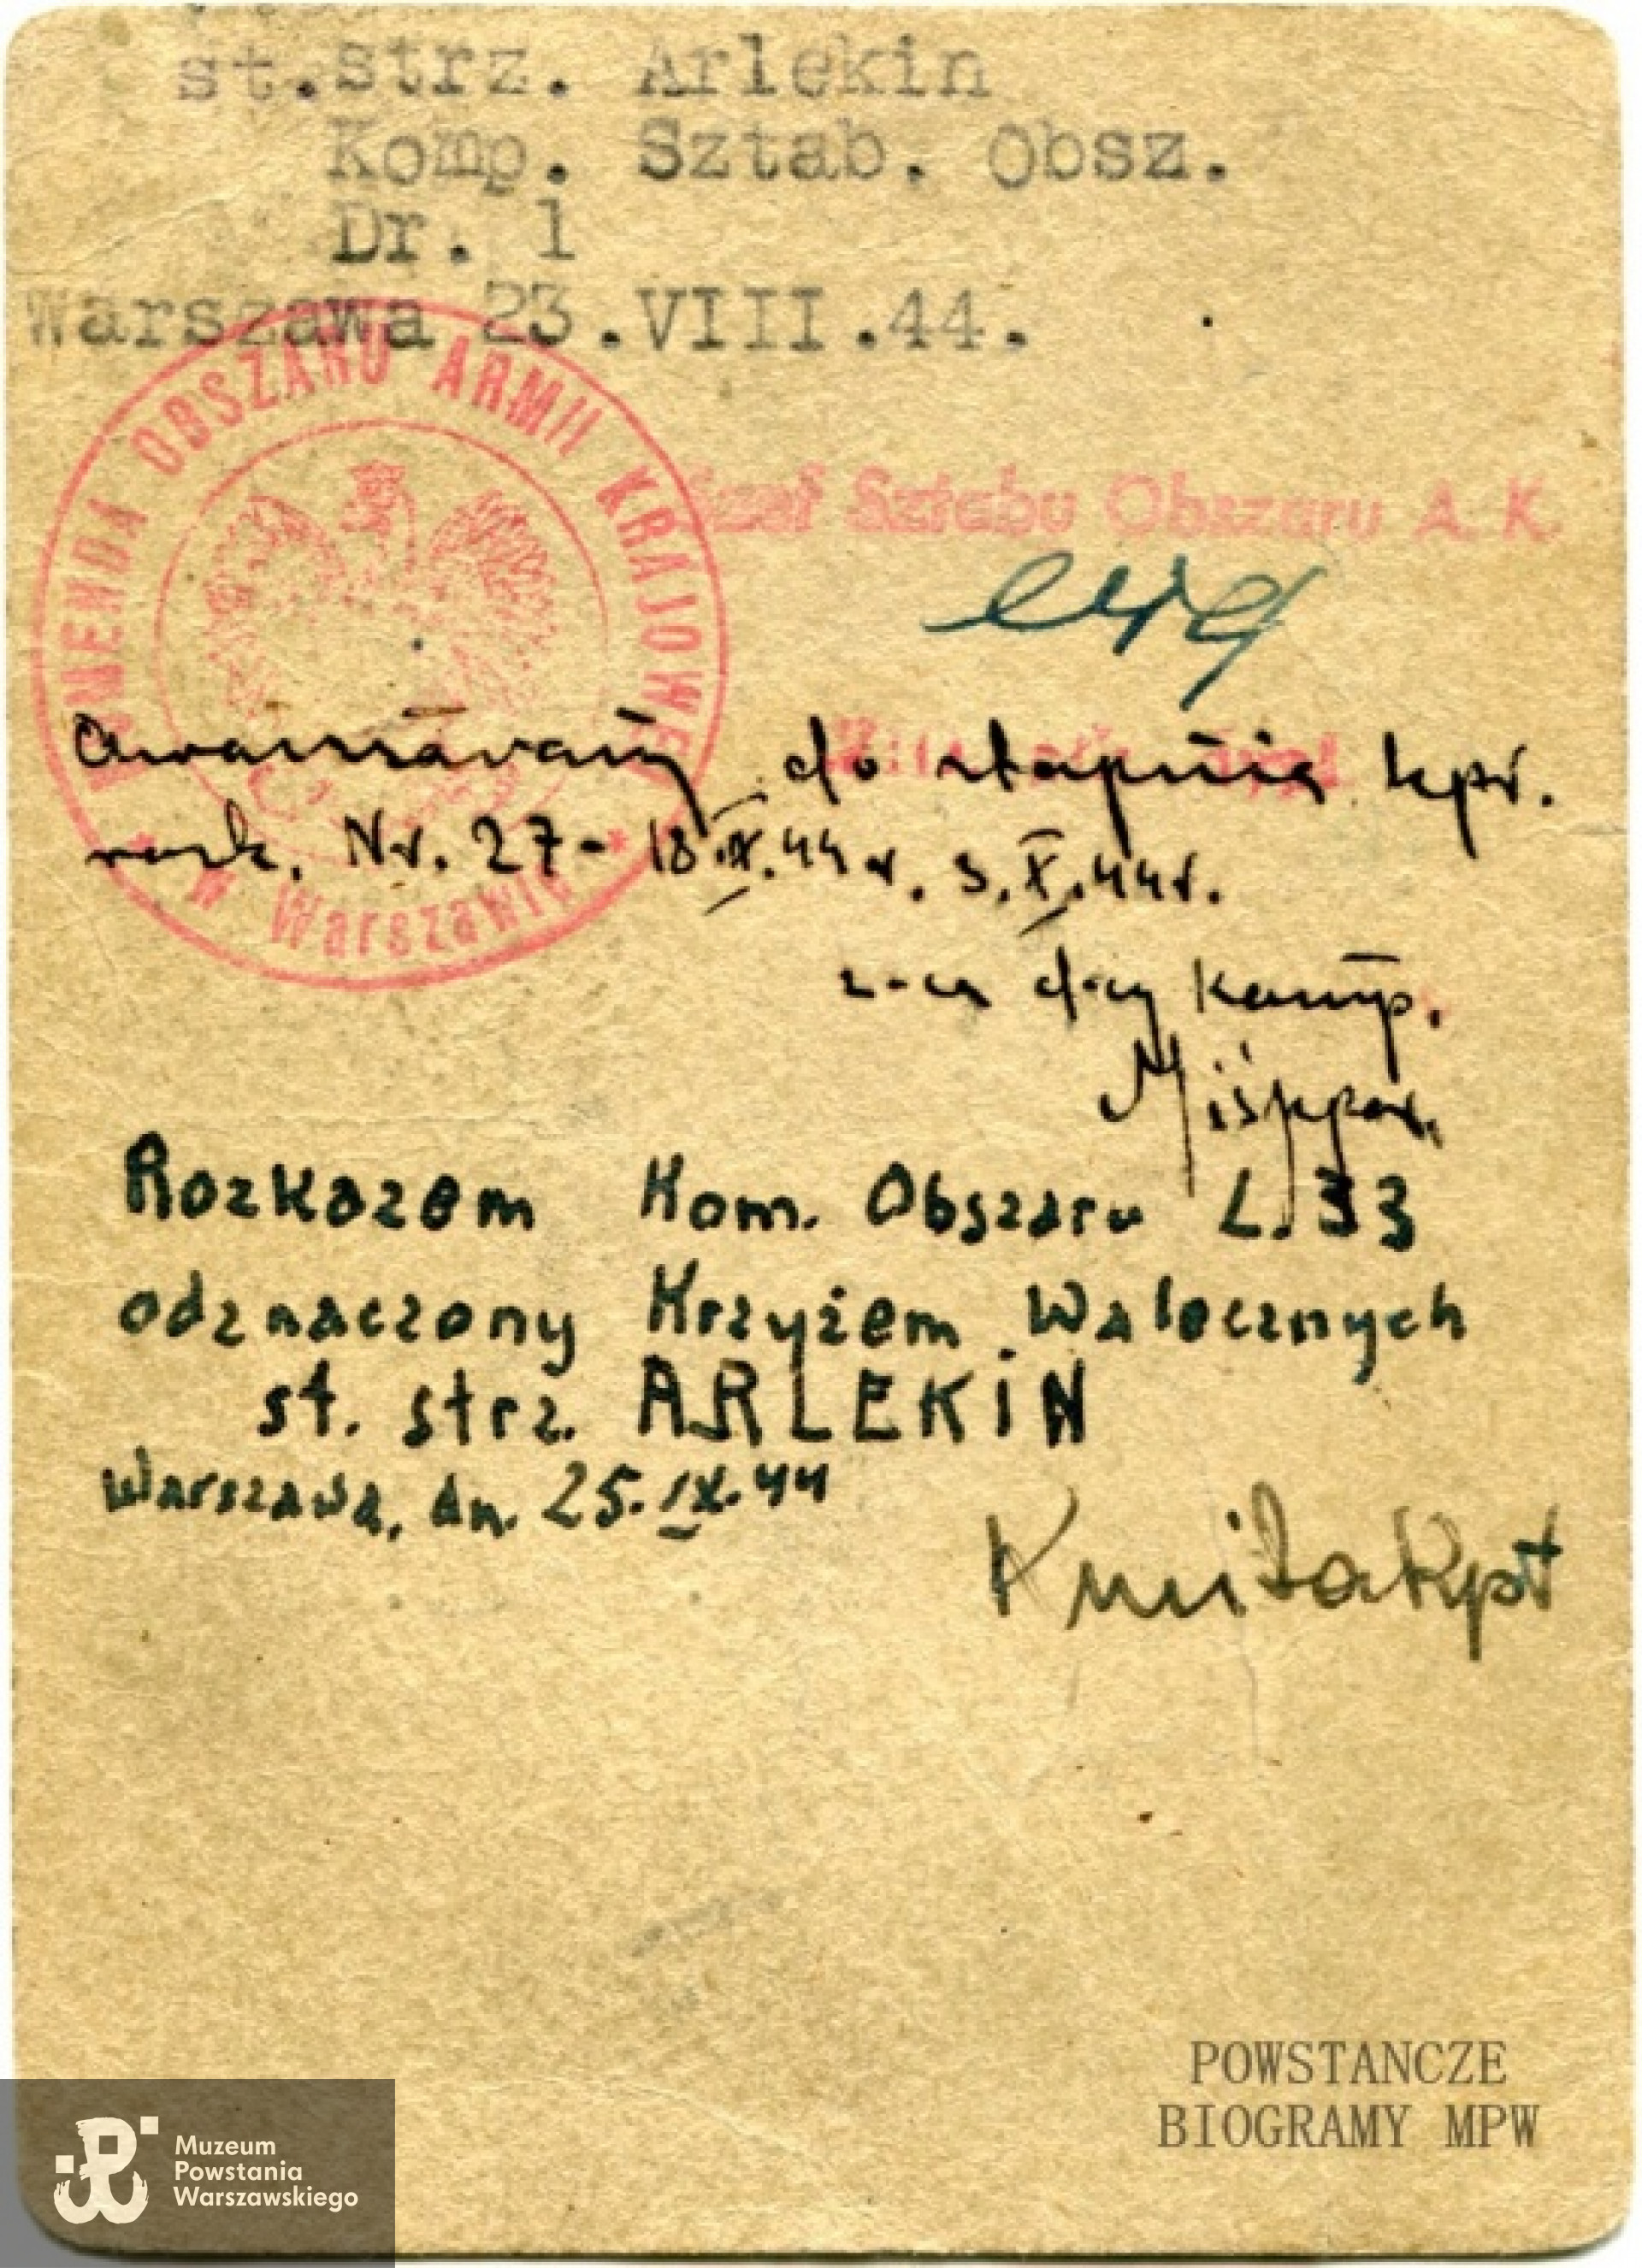 st.strz. Arlekin
Komp. Sztab. Obsz.
Dr. 1
Warszawa 23.VIII.44.
KOMENDA OBSZARU ARMII KRAJOWEJ
* w Warszawie *
Szef Sztabu Obszaru A.K.
Awansowany do stopnia kpr.
rozk. Nr. 27 - 18.IX.44r. 3.X.44r.
z-ca d-cy komp.
Rozkazem Kom. Obszaru L. 33
odznaczony Krzyżem Walecznych
st. strz. ARLEKIN
Warszawa, dn. 25.IX.44
Kmita kpt
POWSTANCZE
BIOGRAMY MPW
Muzeum
Powstania
Warszawskiego